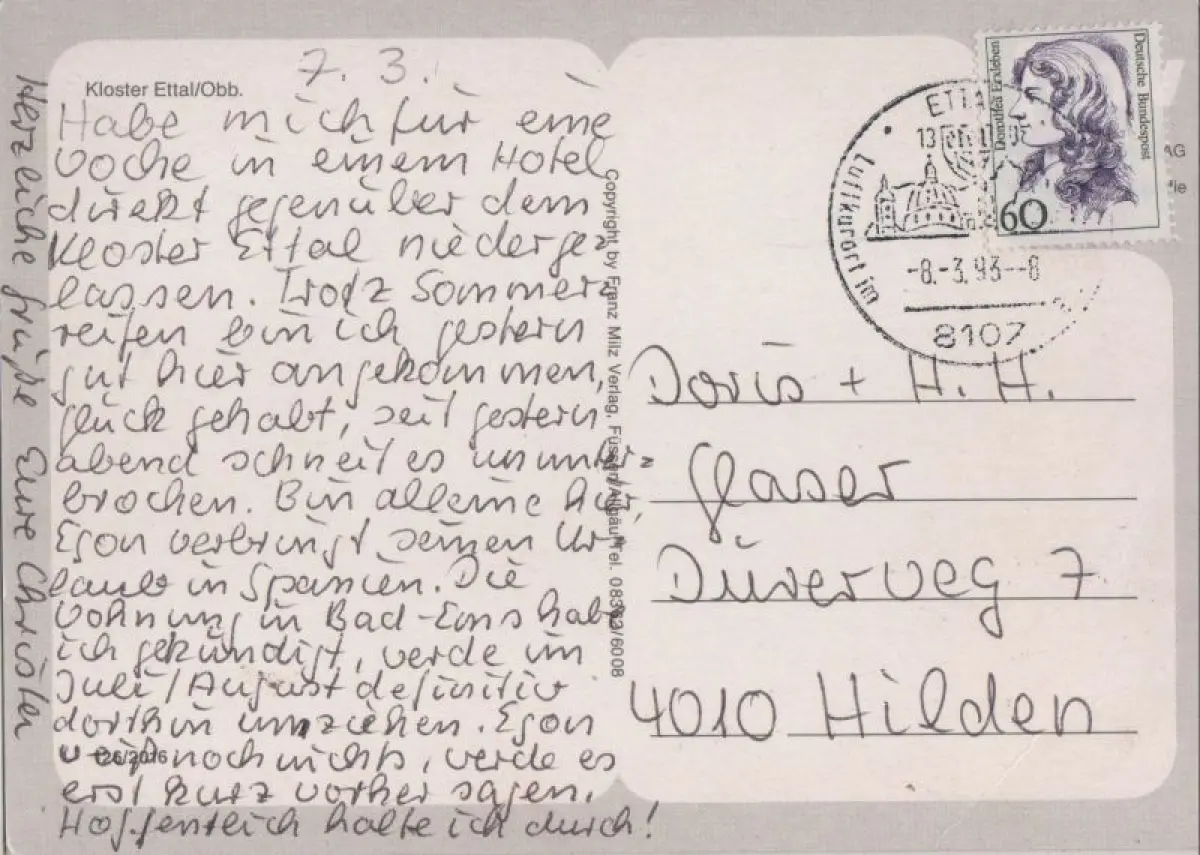 Kloster Ettal/Obb.
7. 3.
Habe mich für eine
Woche in einem Hotel
direkt gegenüber dem
Kloster Ettal niederge-
lassen. Trotz Sommer-
reifen bin ich gestern
gut hier angekommen,
glück gehabt, seit gestern
abend schneit es ununter-
brochen. Bin alleine hier,
Egon verbringt seinen Ur-
laub in Spanien. Die
Wohnung in Bad-Ems habe
ich gekündigt, werde im
Juli/August definitiv
dorthin umziehen. Egon
weiß noch nichts, werde es
erst kurz vorher sagen.
Hoffentlich halte ich durch!
Herzliche Grüße Eure Christa
126/2016
Copyright by Franz Milz Verlag, Füssen/Allgäu Tel. 08362/6008
Deutsche Bundespost
Dorothea Erxleben
60
ETTAL
Luftkurort im
-8.-3.93--8
8107
AG
Doris + H. H.
Glaser
Dürerweg 7
4010 Hilden